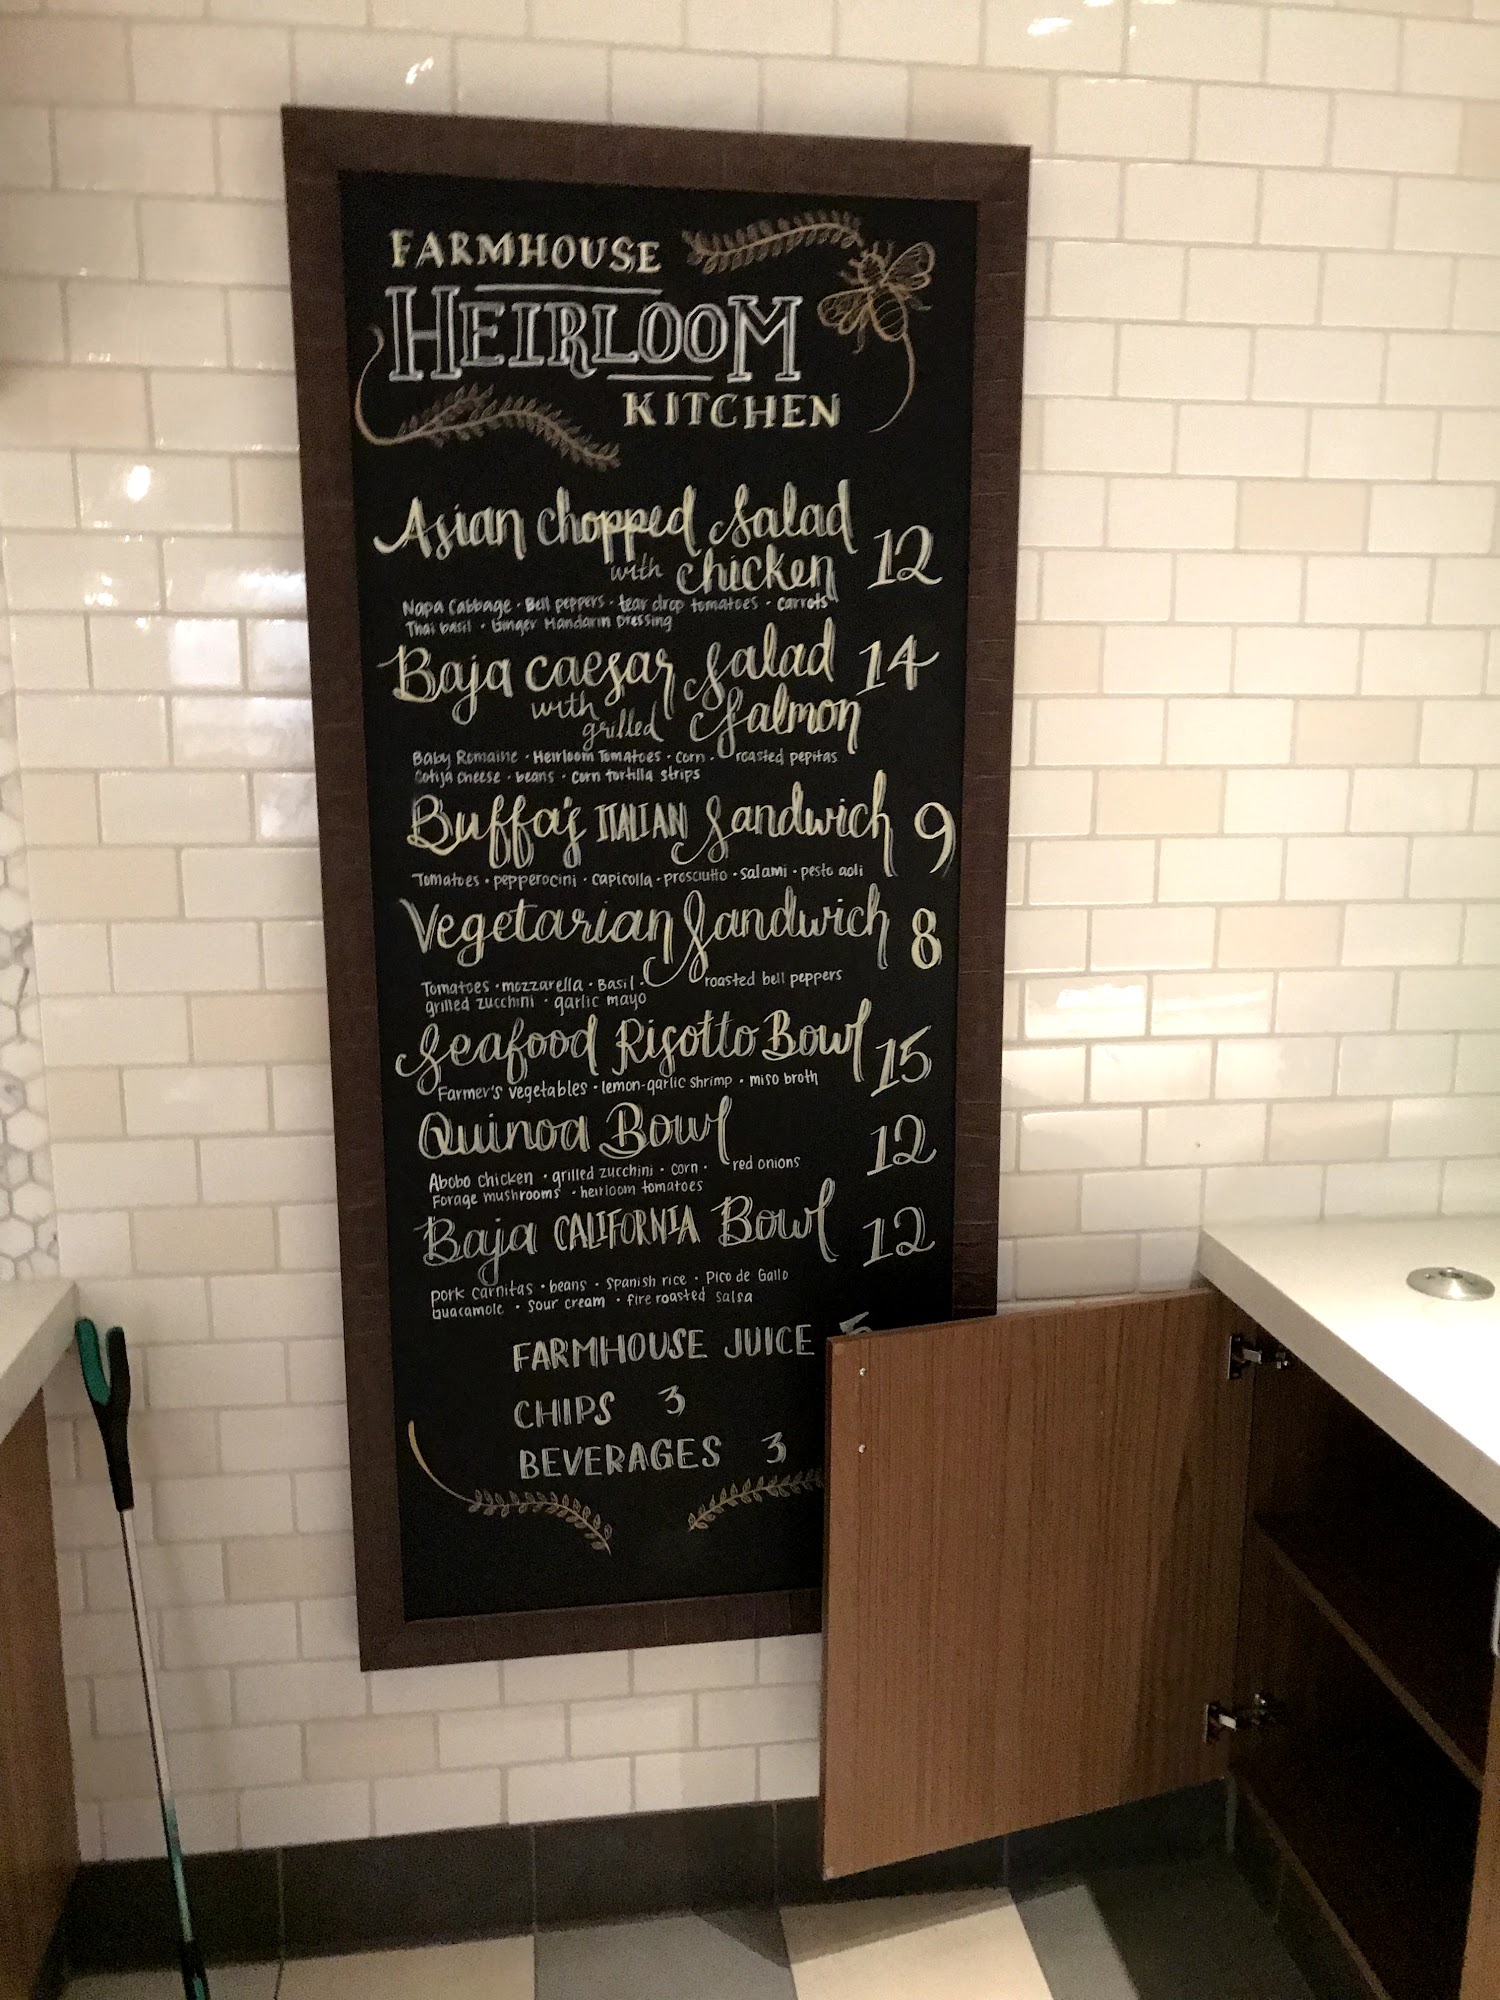 FARMHOUSE
HEIRLOOM
KITCHEN
Asian chopped Salad
with chicken 12
Napa Cabbage · Bell peppers · tear drop tomatoes · carrots
Thai basil · Ginger Mandarin Dressing
Baja caesar Salad 14
with
grilled Salmon
Baby Romaine · Heirloom Tomatoes · corn · roasted pepitas
Cotija cheese · beans · corn tortilla strips
Buffa's ITALIAN Sandwich 9
Tomatoes · pepperocini · capicolla · prosciutto · salami · pesto aoli
Vegetarian Sandwich 8
Tomatoes · mozzarella · Basil · roasted bell peppers
grilled zucchini · garlic mayo
Seafood Risotto Bowl 15
Farmer's vegetables · lemon-garlic shrimp · miso broth
Quinoa Bowl 12
Abobo chicken · grilled zucchini · corn · red onions
Forage mushrooms · heirloom tomatoes
Baja CALIFORNIA Bowl 12
pork carnitas · beans · Spanish rice · Pico de Gallo
Guacamole · sour cream · fire roasted salsa
FARMHOUSE JUICE
CHIPS 3
BEVERAGES 3